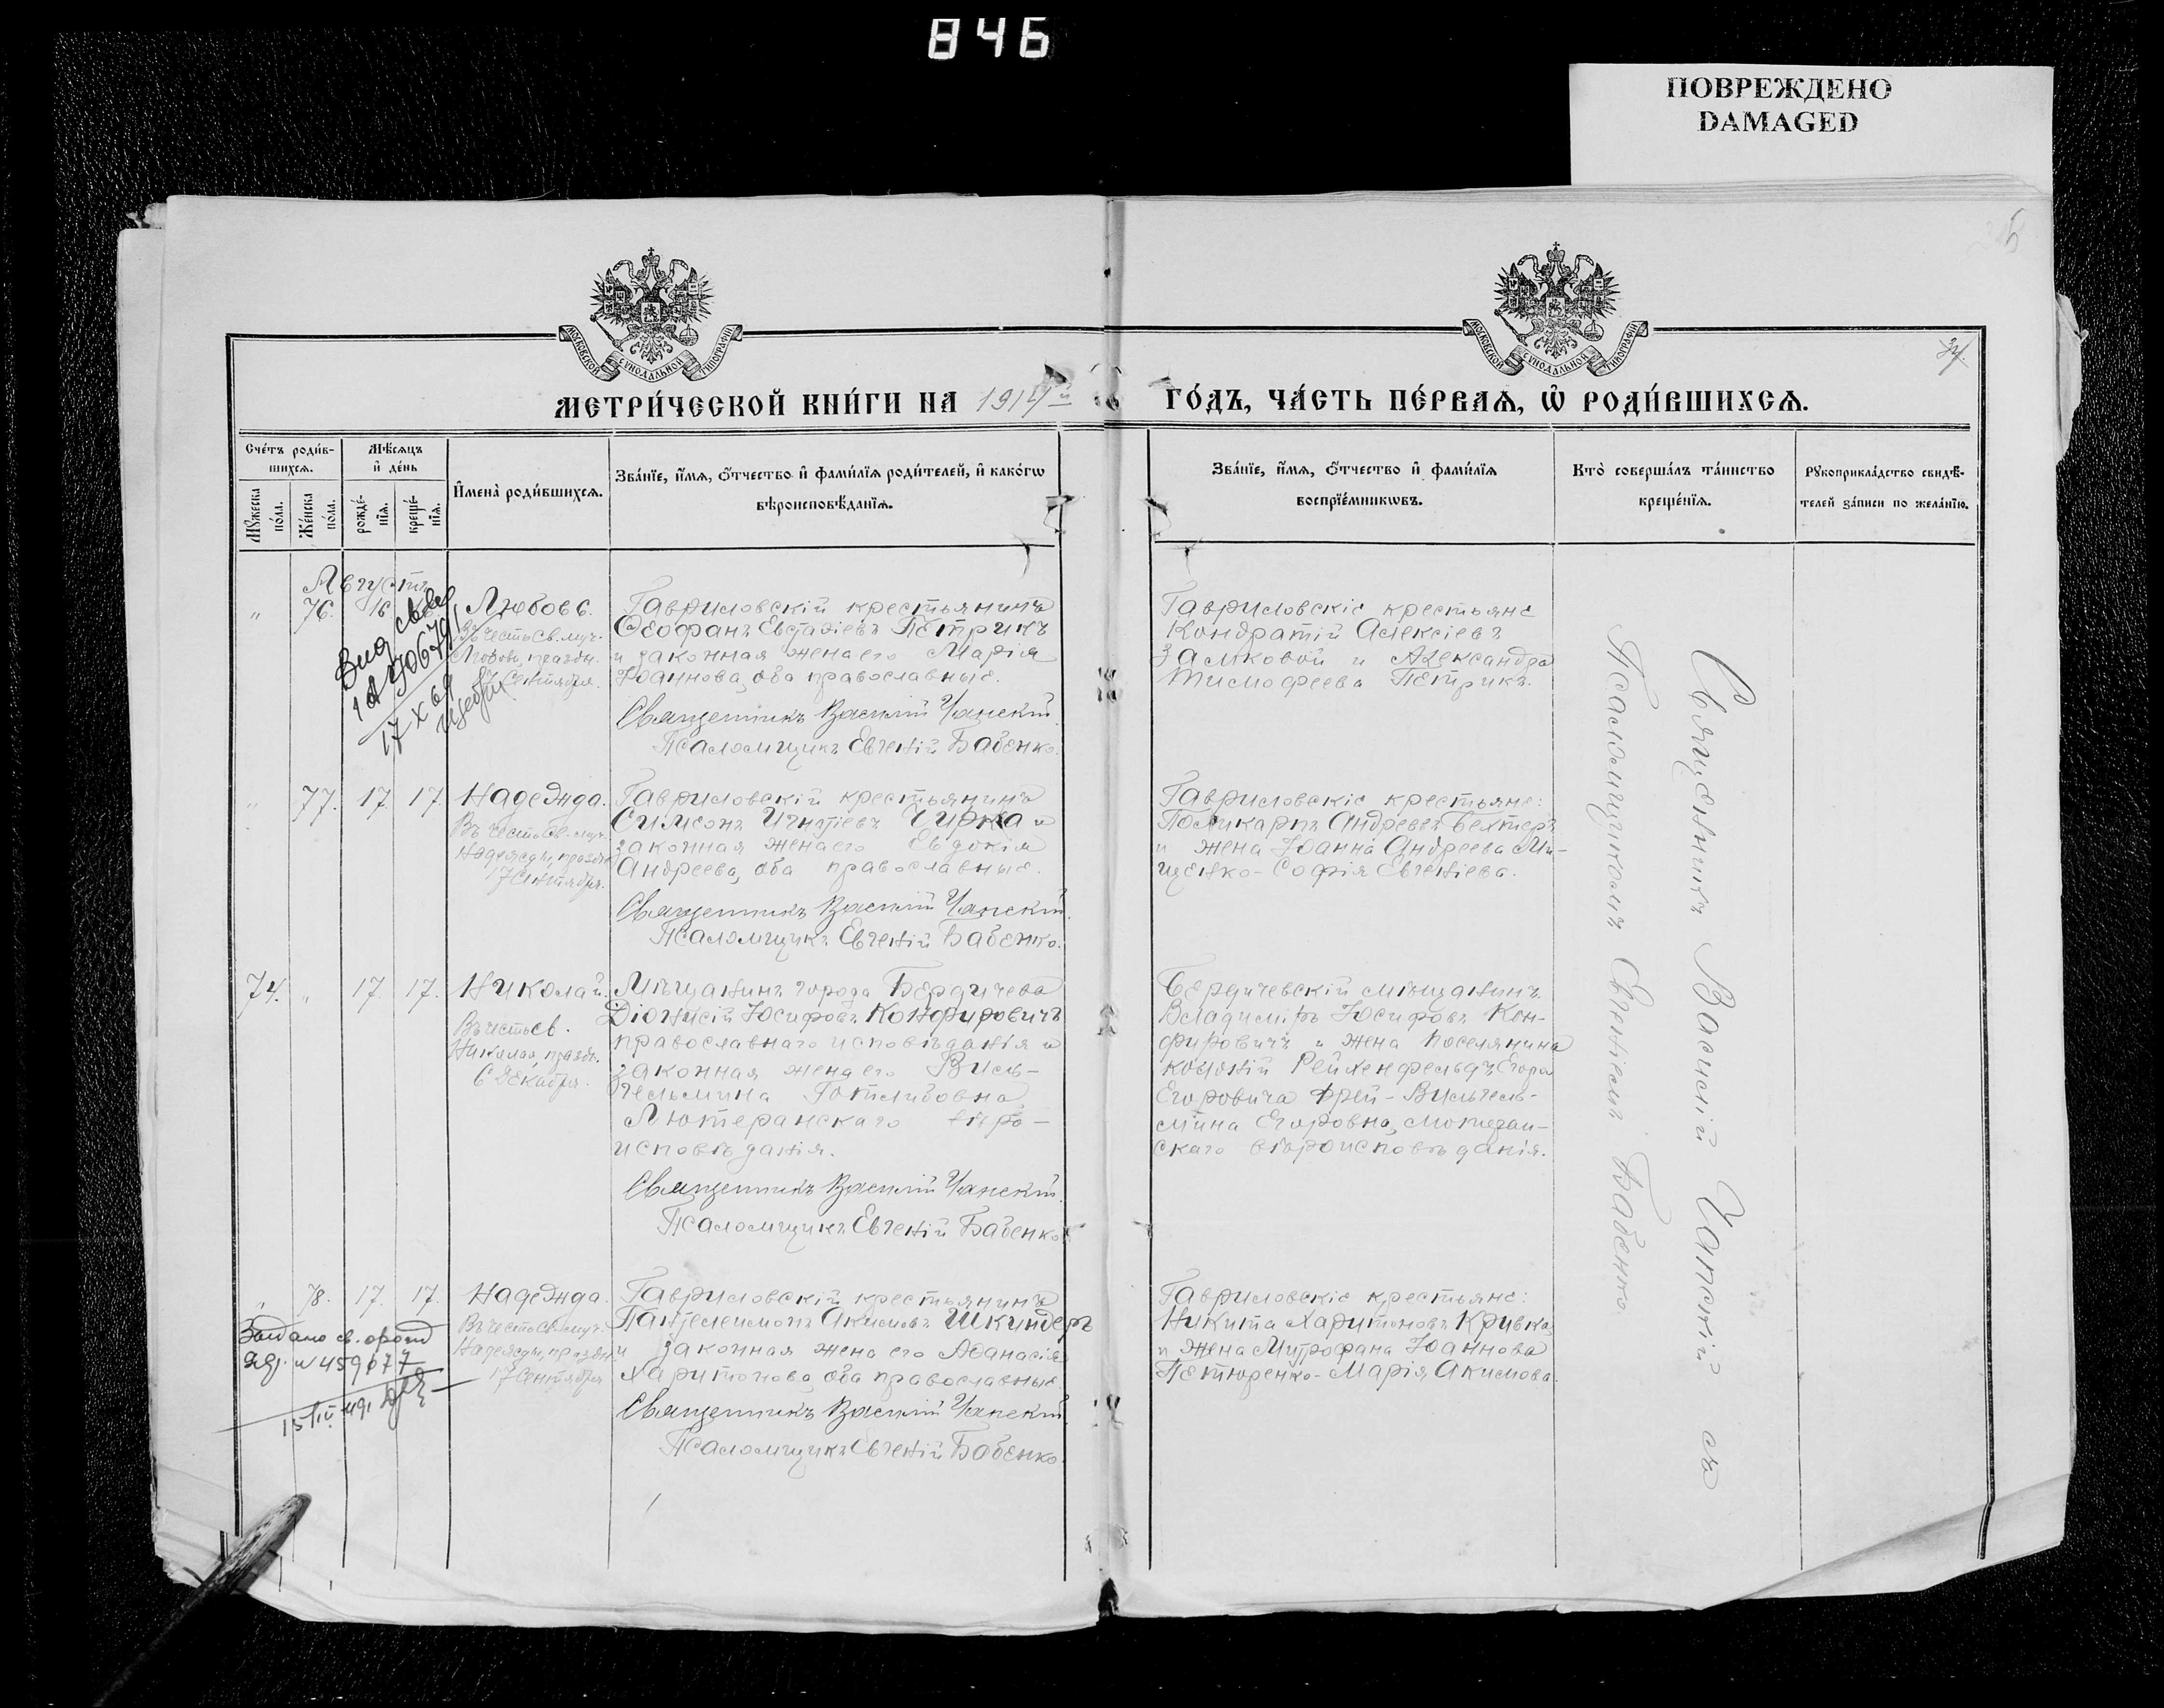 846
ПОВРЕЖДЕНО
DAMAGED
34.
МОСКОВСКОЙ СѴНОДАЛЬНОЙ ТИПОГРАФІИ
МОСКОВСКОЙ СѴНОДАЛЬНОЙ ТИПОГРАФІИ
МЕТРИ́ЧЕСКОЙ КНИ́ГИ НА 1914й
ГО́ДЪ, ЧА́СТЬ ПЕ́РВАѦ, Ѡ҆ РОДИ́ВШИХСѦ.
Сче́тъ роди́в-
шихсѧ.
Мѣ́сѧцъ
и҆ де́нь
Мꙋ́жеска
по́ла.
Же́нска
по́ла.
рожде́-
нїѧ.
креще́-
нїѧ.
И҆мена̀ роди́вшихсѧ.
Зва́нїе, и҆́мѧ, ѻ҆́тчество и҆ фами́лїѧ роди́телей, и҆ како́гѡ
вѣроисповѣ́данїѧ.
Зва́нїе, и҆́мѧ, ѻ҆́тчество и҆ фами́лїѧ
воспрїе́мникѡвъ.
Кто̀ соверша́лъ та́инство
креще́нїѧ.
Рꙋкоприкла́дство свидѣ́-
телей за́писи по жела́нїю.
Августъ
" 76. 16
Любовь.
Въ честь св. муч.
Любови, праздн.
17 Сентября.
17 X 69
Гавриловскій крестьянинъ
Ѳеофанъ Евстафіевъ Петрикъ
и законная жена его Марія
Іоаннова, оба православные.
Священникъ Василій Чанскій.
Псаломщикъ Евгеній Бабенко.
Гавриловскіе крестьяне
Кондратій Алексіевъ
Замковой и Александра
Тимофеева Петрикъ.
" 77. 17. 17.
Надежда.
Въ честь св. муч.
Надежды, праздн.
17 Сентября.
Гавриловскій крестьянинъ
Симеонъ Игнатіевъ Чирка и
законная жена его Евдокія
Андреева, оба православные.
Священникъ Василій Чанскій.
Псаломщикъ Евгеній Бабенко.
Гавриловскіе крестьяне:
Поликарпъ Андреевъ Бехтеръ
и жена Іоанна Андреева Ми-
щенко - Софія Евгеніева.
74. " 17. 17.
Николай.
Въ честь св.
Николая, праздн.
6 Декабря.
Мѣщанинъ города Бердичева
Діонисій Іосифовъ Конфировичъ
православнаго исповѣданія и
законная жена его Виль-
гельмина Готлибовна
Лютеранскаго вѣро-
исповѣданія.
Священникъ Василій Чанскій.
Псаломщикъ Евгеній Бабенко.
Бердичевскій мѣщанинъ
Владиміръ Іосифовъ Кон-
фировичъ и жена поселянина
колоніи Рейхенфельдъ Егора
Егоровича Фрей - Вильгель-
мина Егоровна, лютеран-
скаго вѣроисповѣданія.
" 78. 17. 17.
Надежда.
Въ честь св. муч.
Надежды, праздн.
17 Сентября
№ 459677
15/IV-49.
Гавриловскій крестьянинъ
Пантелеимонъ Акимовъ Шкиндеръ
и законная жена его Аѳанасія
Харитонова, оба православные.
Священникъ Василій Чанскій.
Псаломщикъ Евгеній Бабенко.
Гавриловскіе крестьяне:
Никита Харитоновъ Кривко
и жена Митрофана Іоаннова
Петюренко - Марія Акимова.
Священникъ Василій Чанскій съ
Псаломщикомъ Евгеніемъ Бабенко